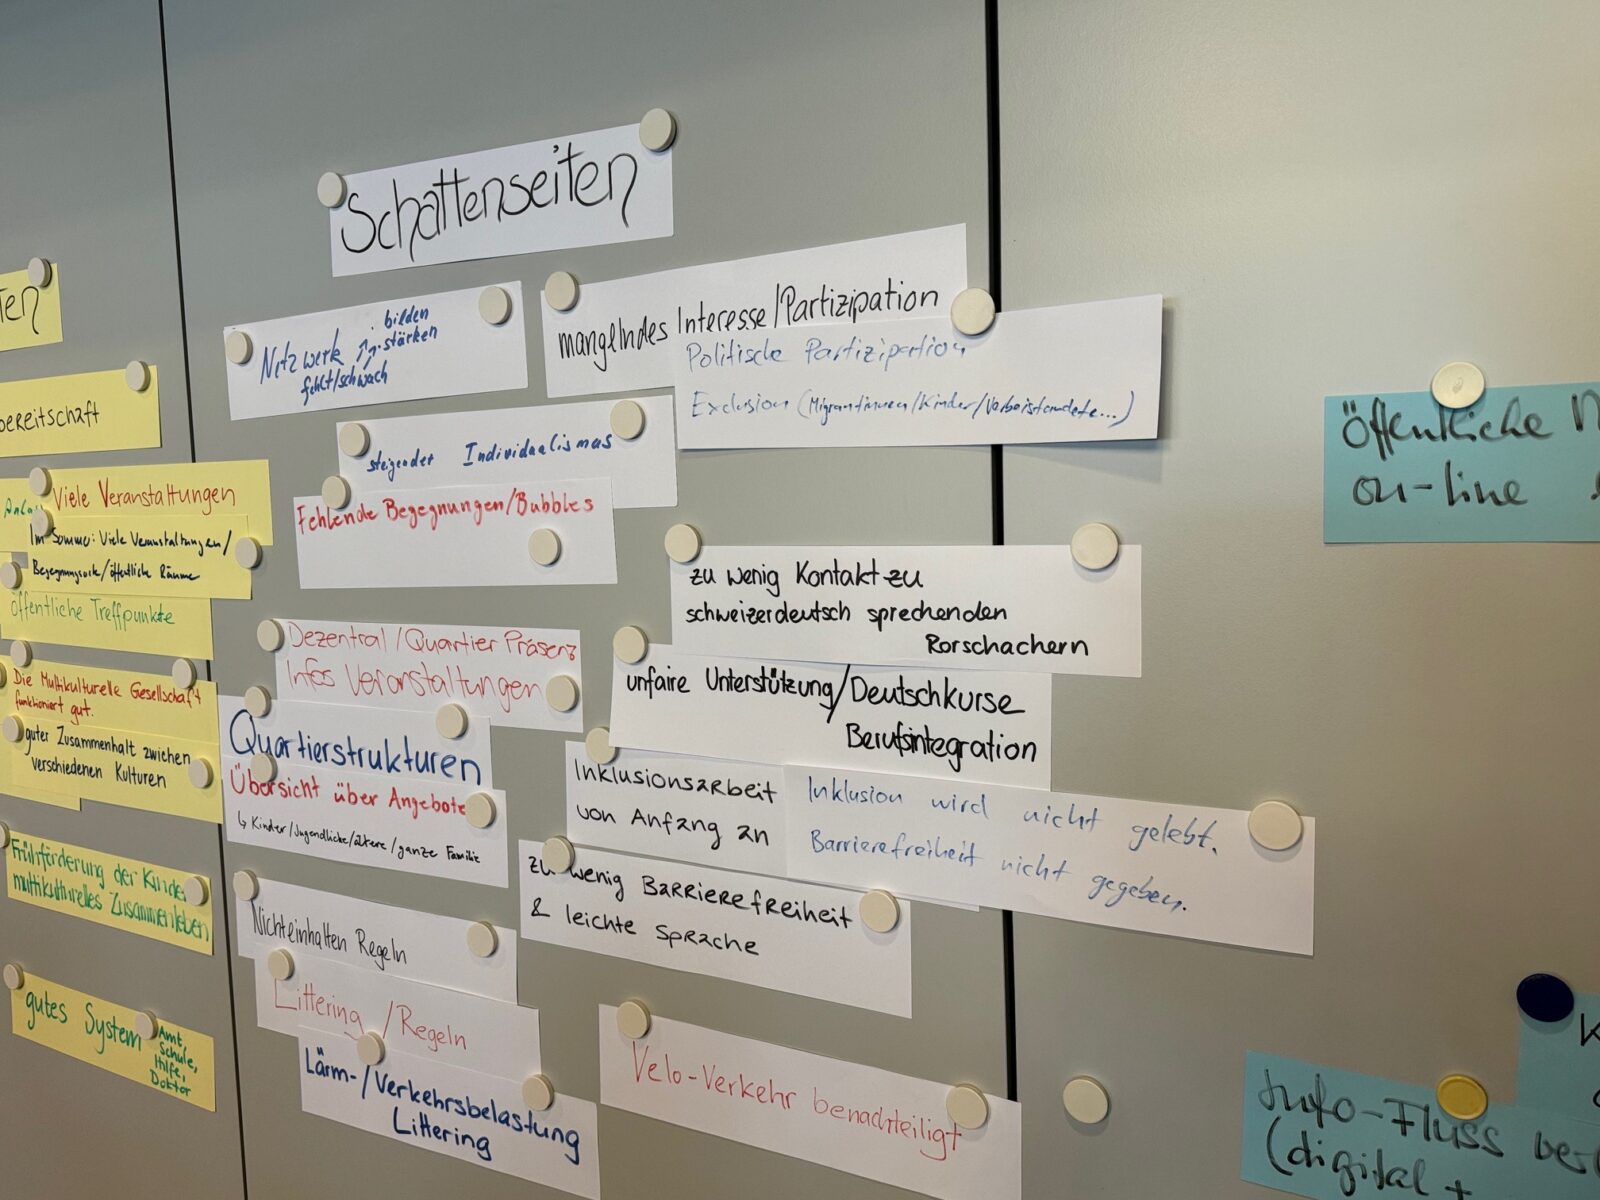 Schattenseiten
Netzwerk bilden
stärken
fehlt/schwach
mangelndes Interesse/Partizipation
Politische Partizipation
Exclusion (Migrantinnen/Kinder/Verbeistandete...)
steigender Individualismus
Fehlende Begegnungen/Bubbles
zu wenig Kontakt zu
schweizerdeutsch sprechenden
Rorschachern
unfaire Unterstützung/Deutschkurse
Berufsintegration
Dezentral/Quartier Präsenz
Infos Veranstaltungen
Quartierstrukturen
Übersicht über Angebote
↳ Kinder/Jugendliche/ältere/ganze Familie
Inklusionsarbeit
von Anfang an
Inklusion wird nicht gelebt.
Barrierefreiheit nicht gegeben.
zu wenig Barrierefreiheit
& leichte Sprache
Nichteinhalten Regeln
Littering/Regeln
Lärm-/Verkehrsbelastung
Littering
Velo-Verkehr benachteiligt
ten
bereitschaft
Viele Veranstaltungen
Im Sommer: Viele Veranstaltungen/
Begegnungsorte/öffentliche Räume
öffentliche Treffpunkte
Die Multikulturelle Gesellschaft
funktioniert gut.
guter Zusammenhalt zwichen
verschiedenen Kulturen
Frühförderung der Kinder
multikulturelles Zusammenleben
gutes System
Amt,
Schule,
Hilfe,
Doktor
Öffentliche
on-line
Info-Fluss
(digital +